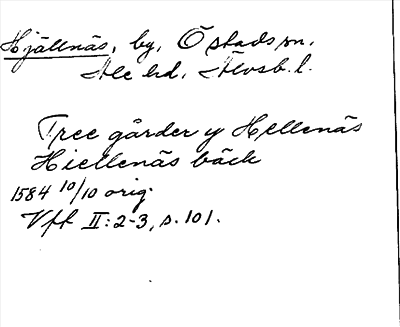 Hjällnäs, by, Östads sn,
Ale hd, Älvsb. l.
Tree gårder y Hellenäs
Hiellenäs bäck
1584 10/10 orig.
Vff II:2-3, s. 101.